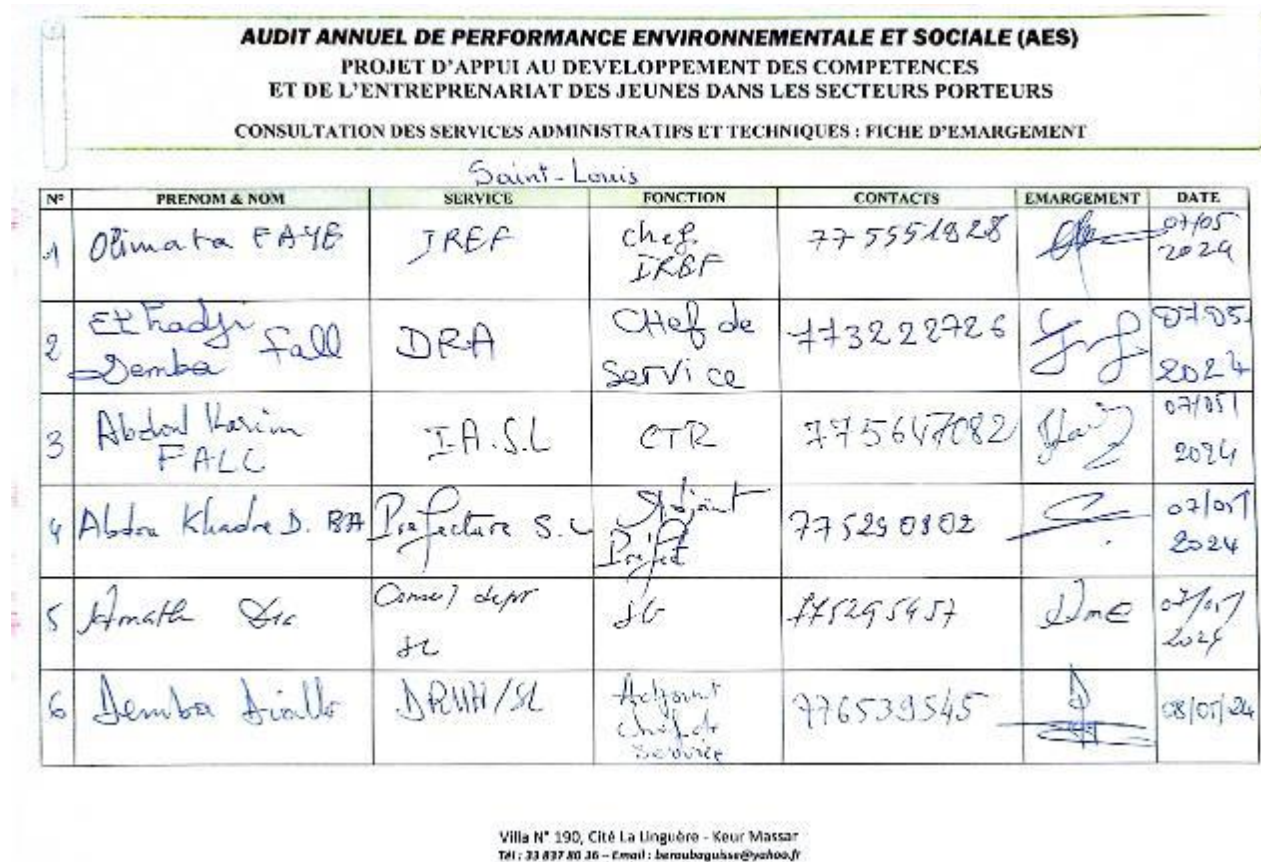 AUDIT ANNUEL DE PERFORMANCE ENVIRONNEMENTALE ET SOCIALE (AES)
PROJET D'APPUI AU DEVELOPPEMENT DES COMPETENCES
ET DE L'ENTREPRENARIAT DES JEUNES DANS LES SECTEURS PORTEURS
CONSULTATION DES SERVICES ADMINISTRATIFS ET TECHNIQUES : FICHE D'EMARGEMENT
Saint-Louis
N° PRENOM & NOM SERVICE FONCTION CONTACTS EMARGEMENT DATE
1 Oumata FAYE IREF chef IREF 775551928 07/05 2024
2 El hadji Demba Fall DRA CHef de Service 773222726 07.05. 2024
3 Abdoul Karim FALL I.A.S.L CTR 775647082 07/05/ 2024
4 Abdou Khadre D. BA Prefecture S.L Adjoint Prefet 775290802 07/05/ 2024
5 Amath Conseil depr SL SG 775295957 07/05/ 2024
6 Demba Diallo /SL Adjoint chef de service 776539545 08/05/24
Villa N° 190, Cité La Linguère - Keur Massar
Tél : 33 837 80 36 – Email : beraubaguisse@yahoo.fr